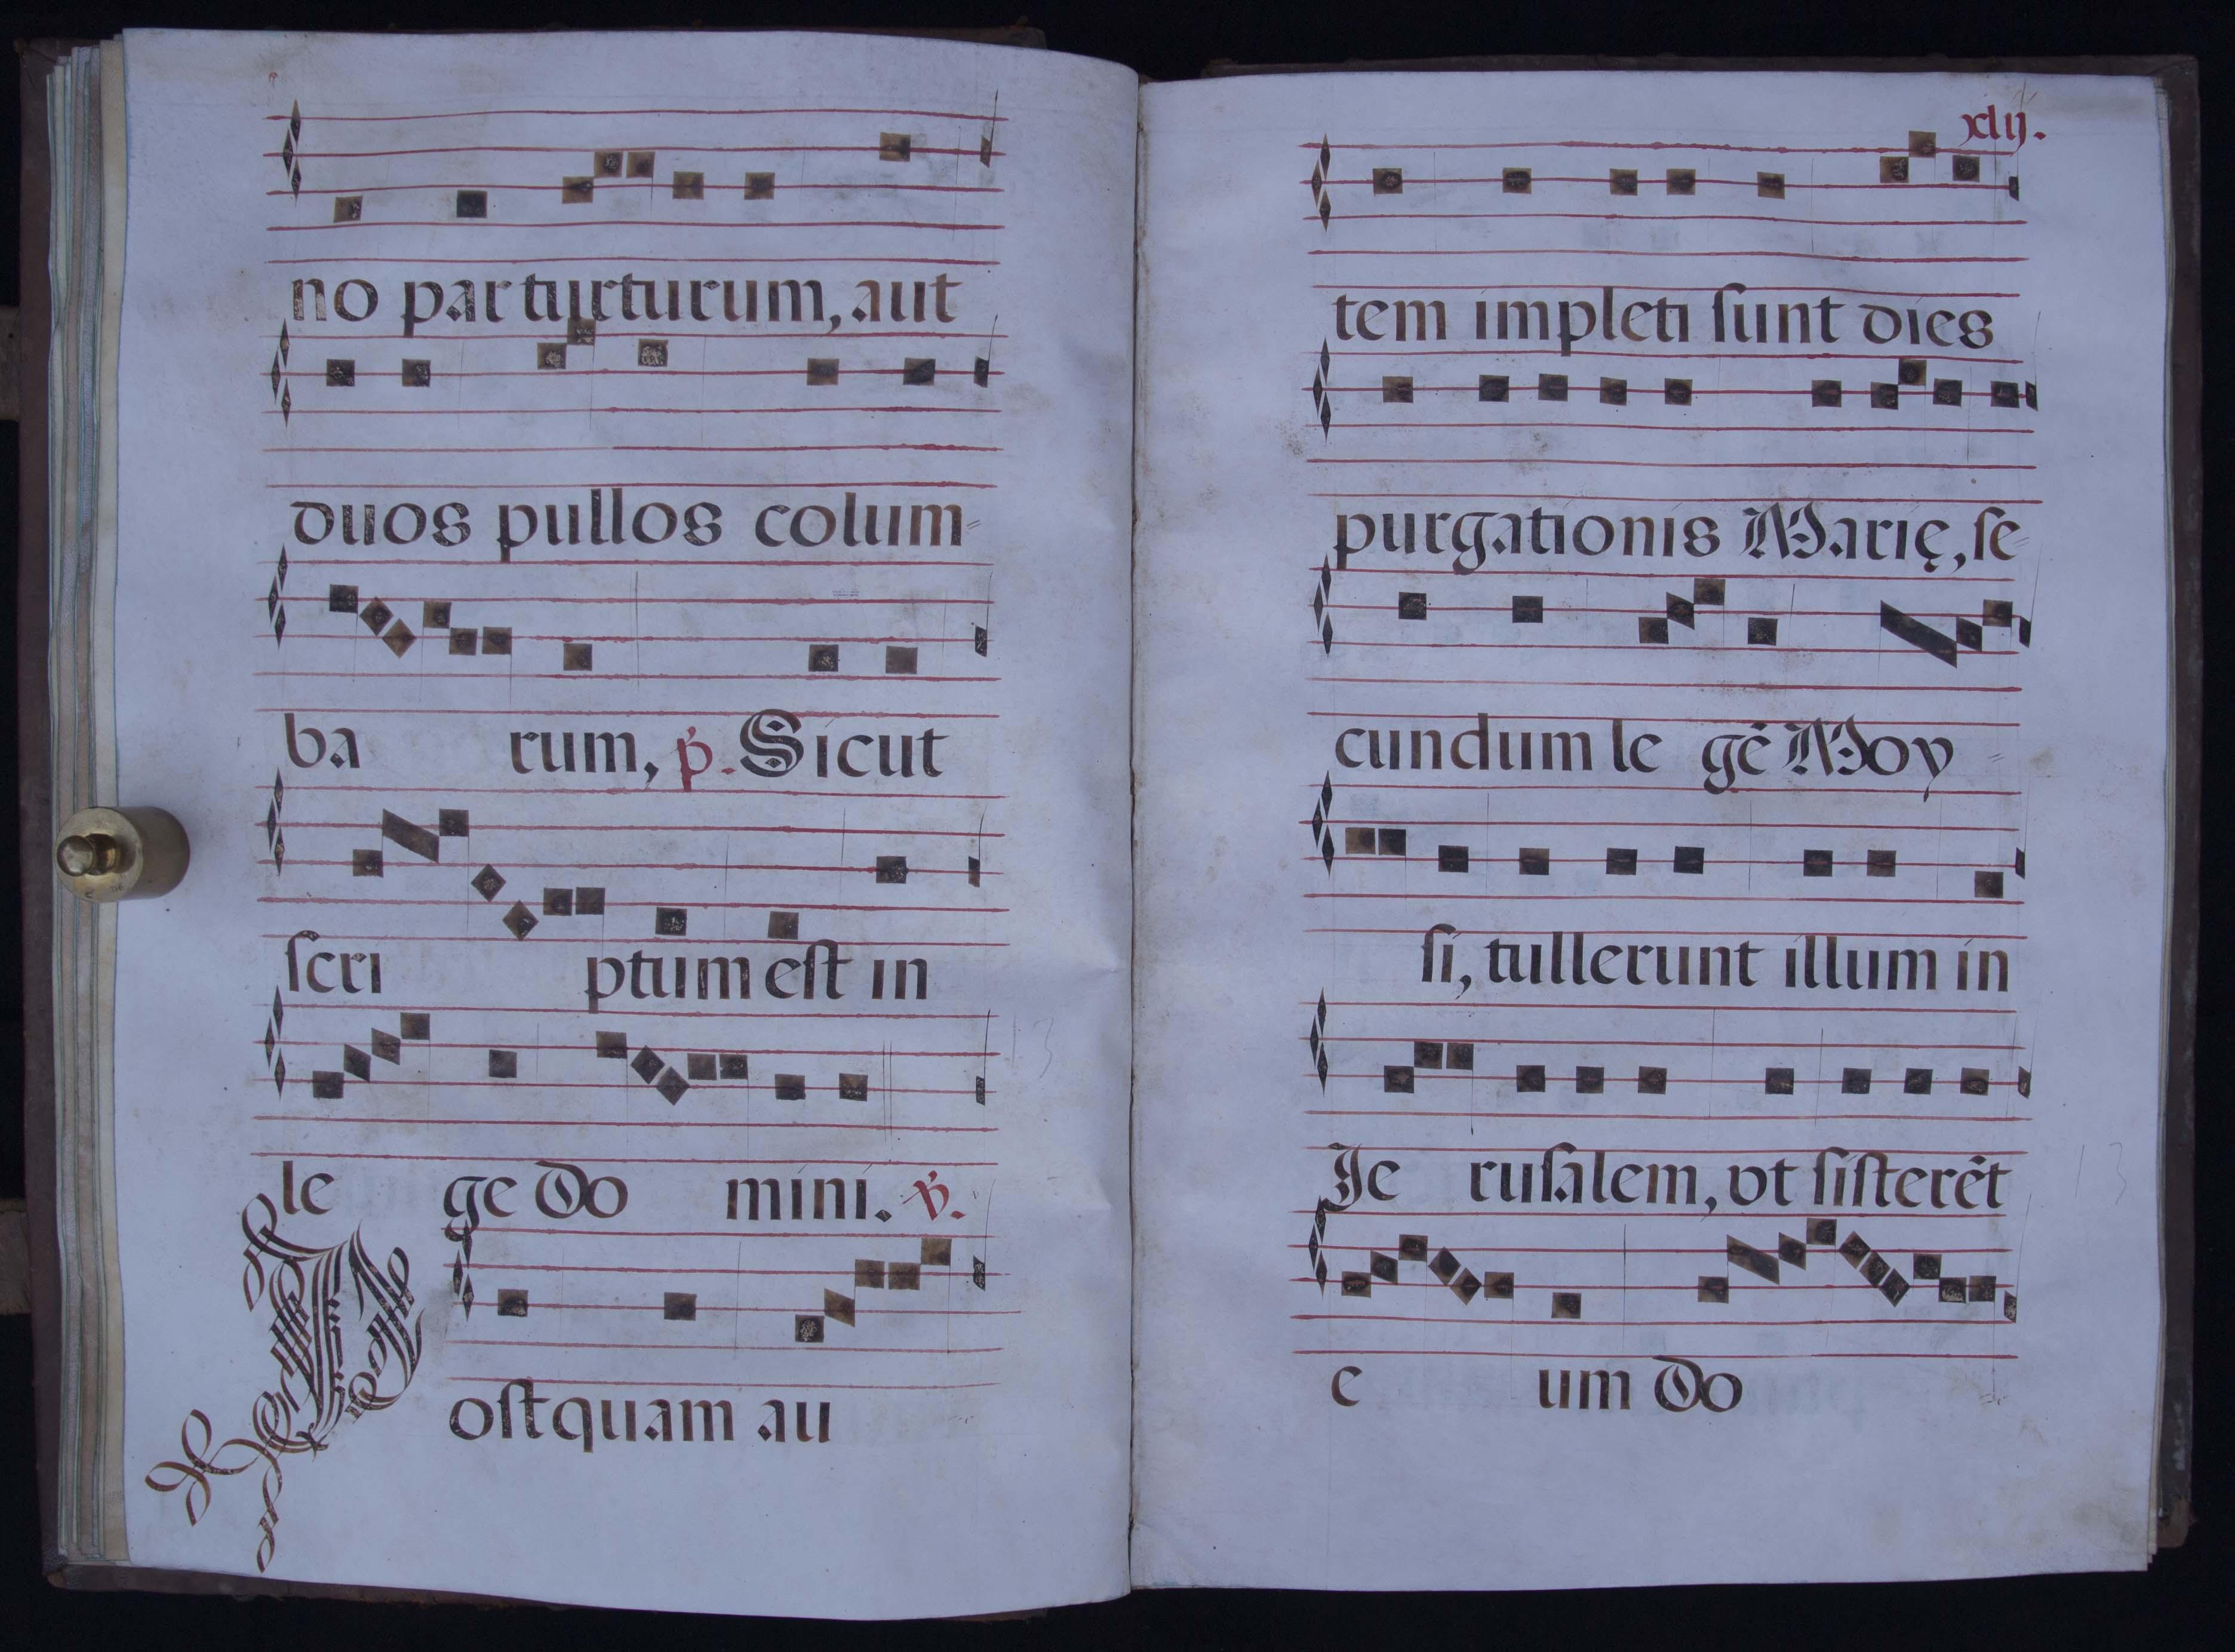 no par turturum, aut
duos pullos colum=
ba rum, p. Sicut
scri ptum est in
le ge Do mini. v.
P ostquam au
xlij.
tem impleti sunt dies
purgationis Marię, se-
cundum le gē Moy=
si, tullerunt illum in
Je rusalem, vt sisterēt
e um Do
13
13